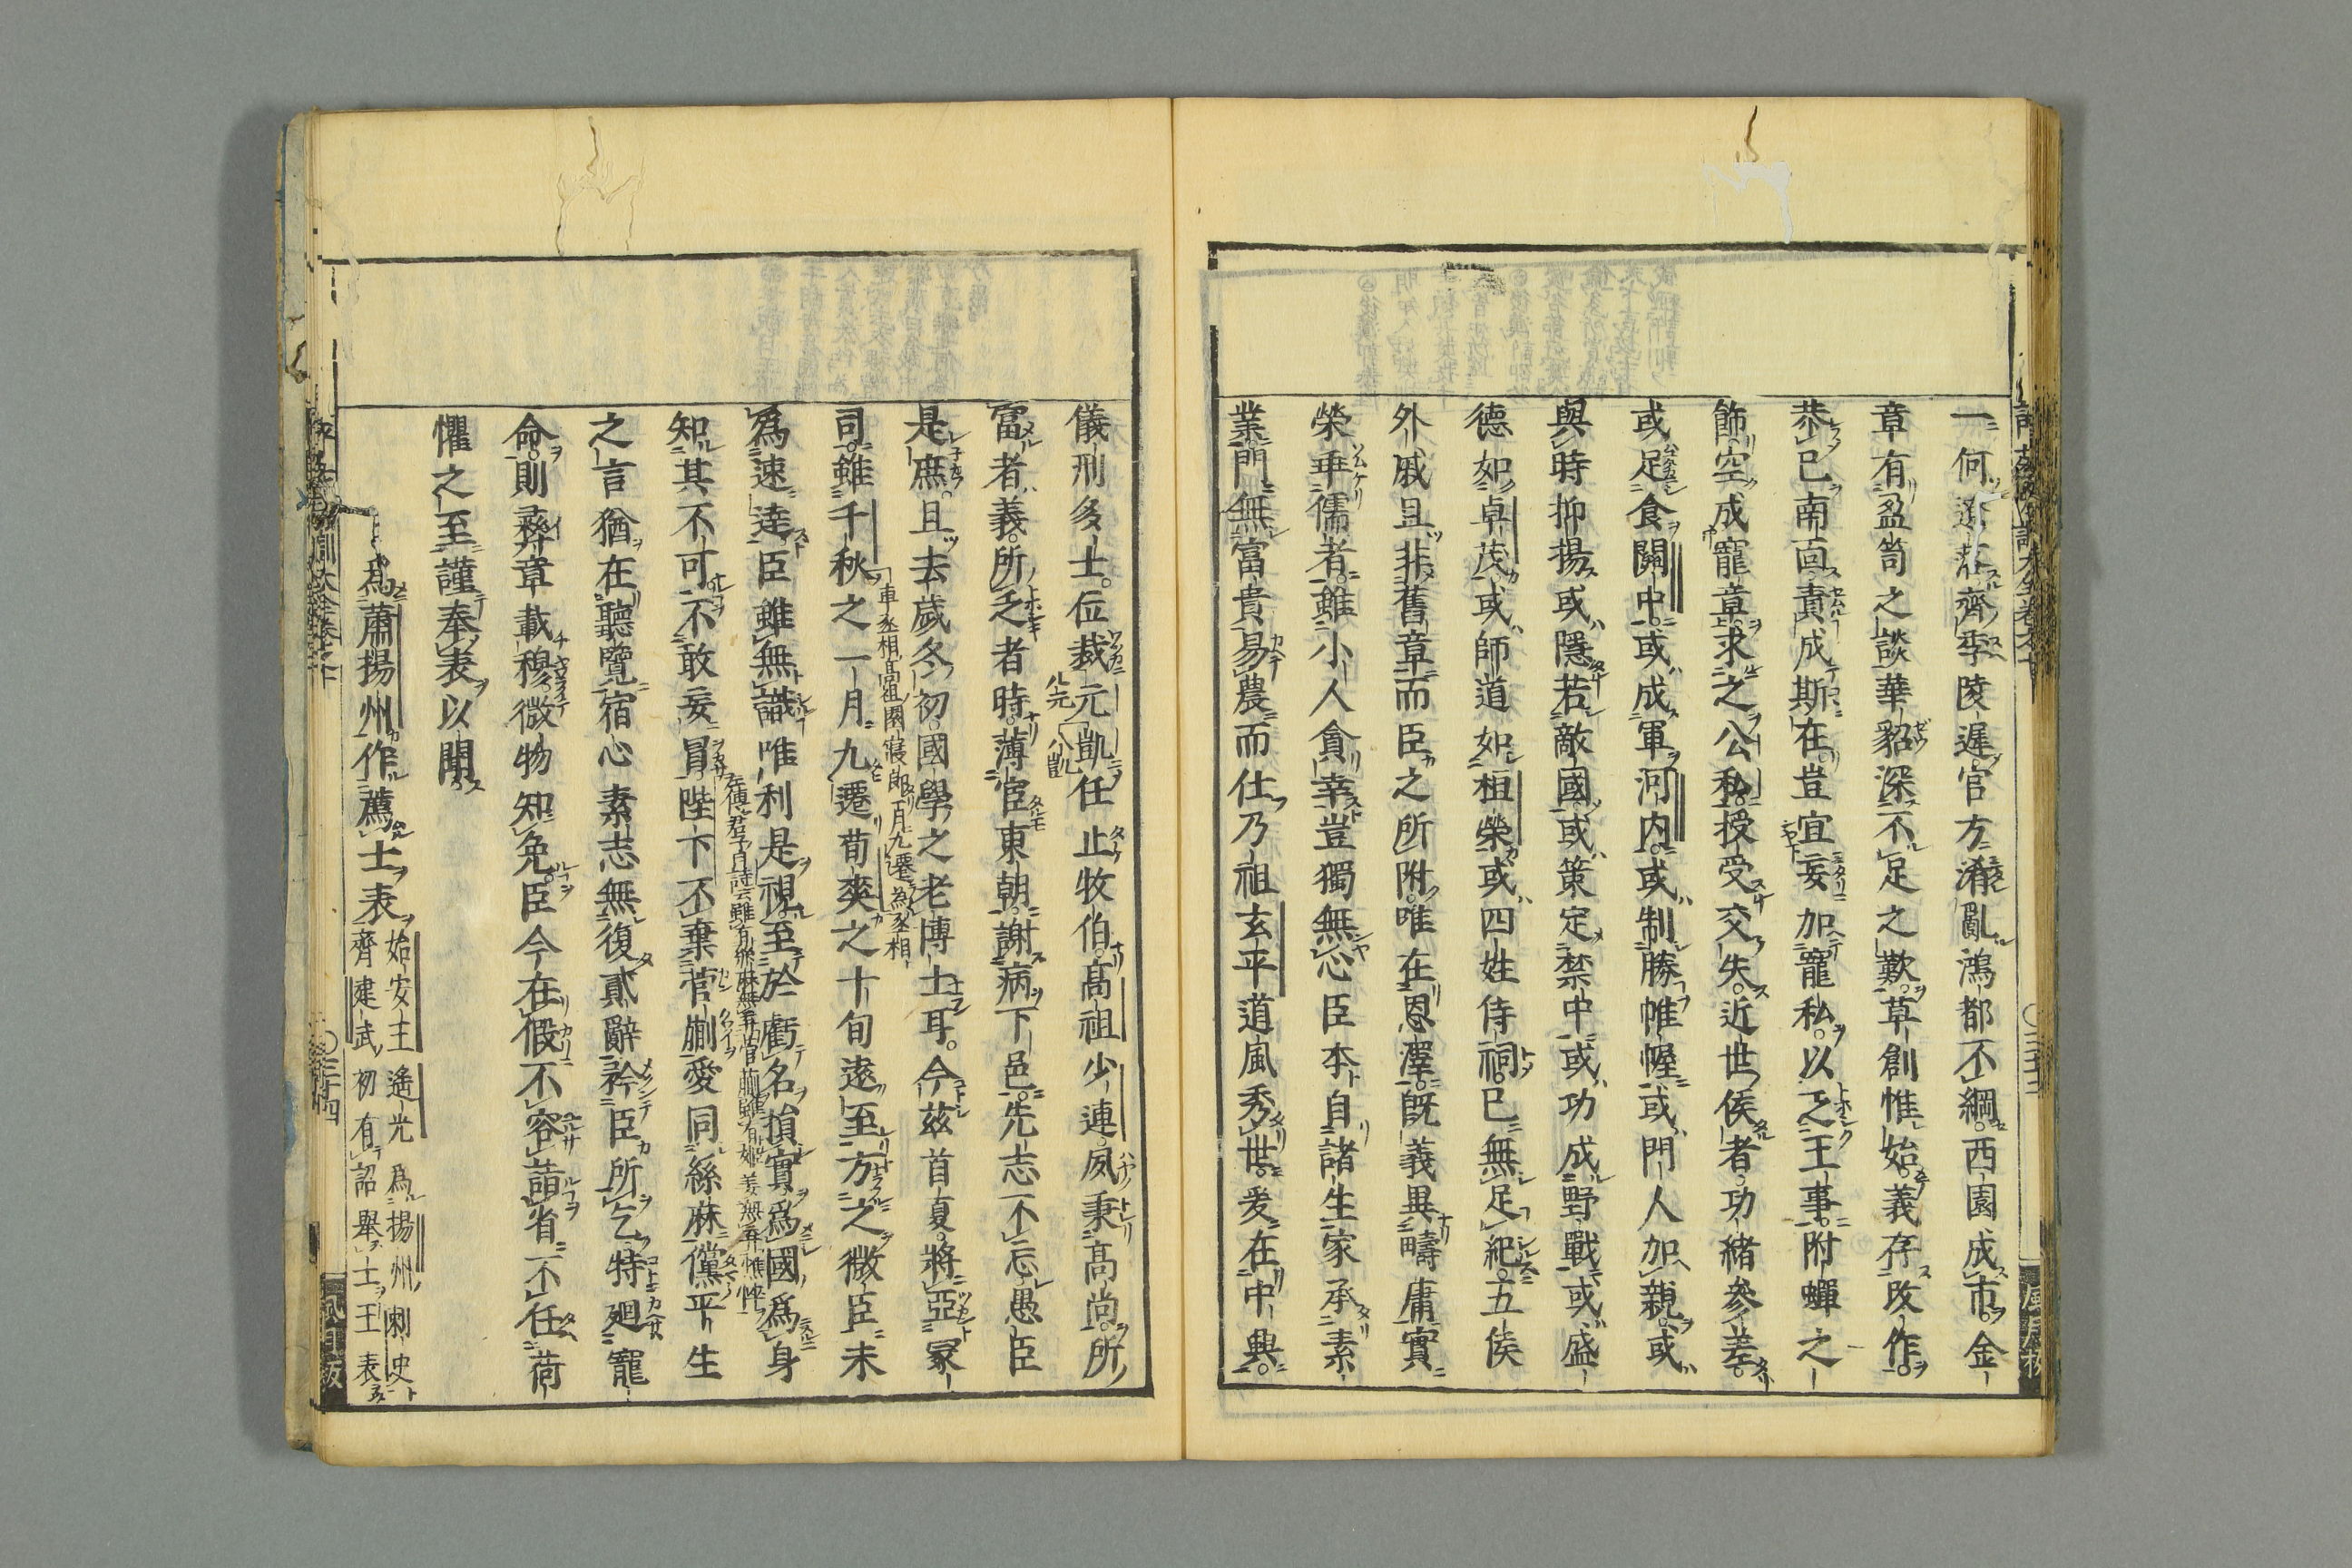 一何遼落齊季陵遲官方淆亂鴻都不綱西園成市金
章有盈笥之談華貂深不足之歎草創惟始義存改作
恭己南面責成斯在豈宜妄加寵私以乏王事附蟬之
飾空成寵章求之公私授受交失近世侯者功緒參差
或足食關中或成軍河内或制勝帷幄或門人加親或
與時抑揚或隱若敵國或策定禁中或功成野戰或盛
德如卓茂或師道如桓榮或四姓侍祠已無足紀五侯
外戚且非舊章而臣之所附唯在恩澤既義異疇庸實
榮乖儒者雖小人貪幸豈獨無心臣本自諸生家承素
業門無富貴易農而仕乃祖玄平道風秀世爰在中興
儀刑多士位裁元凱任止牧伯高祖少連夙秉高尚所
八元 八凱
富者義所乏者時薄宦東朝謝病下邑先志不忘愚臣
是庶且去歲冬初國學之老博士耳今茲首夏將亞冢
車丞相高祖園寝郎一月九遷為丞相
司雖千秋之一月九遷荀爽之十旬遠至方之微臣未
為速達臣雖無識唯利是視至於虧名損實為國為身
左傳君子曰詩云雖有絲麻無弃菅蒯雖有姬姜無弃憔悴
知其不可不敢妄冒陛下不棄菅蒯愛同絲麻儻平生
之言猶在聽覽宿心素志無復貳辭矜臣所乞特廻寵
命則彝章載穆微物知免臣今在假不容詣省不任荷
懼之至謹奉表以聞
為蕭揚州作薦士表
始安王遙光為揚州刺史
齊建武初有詔舉士王表